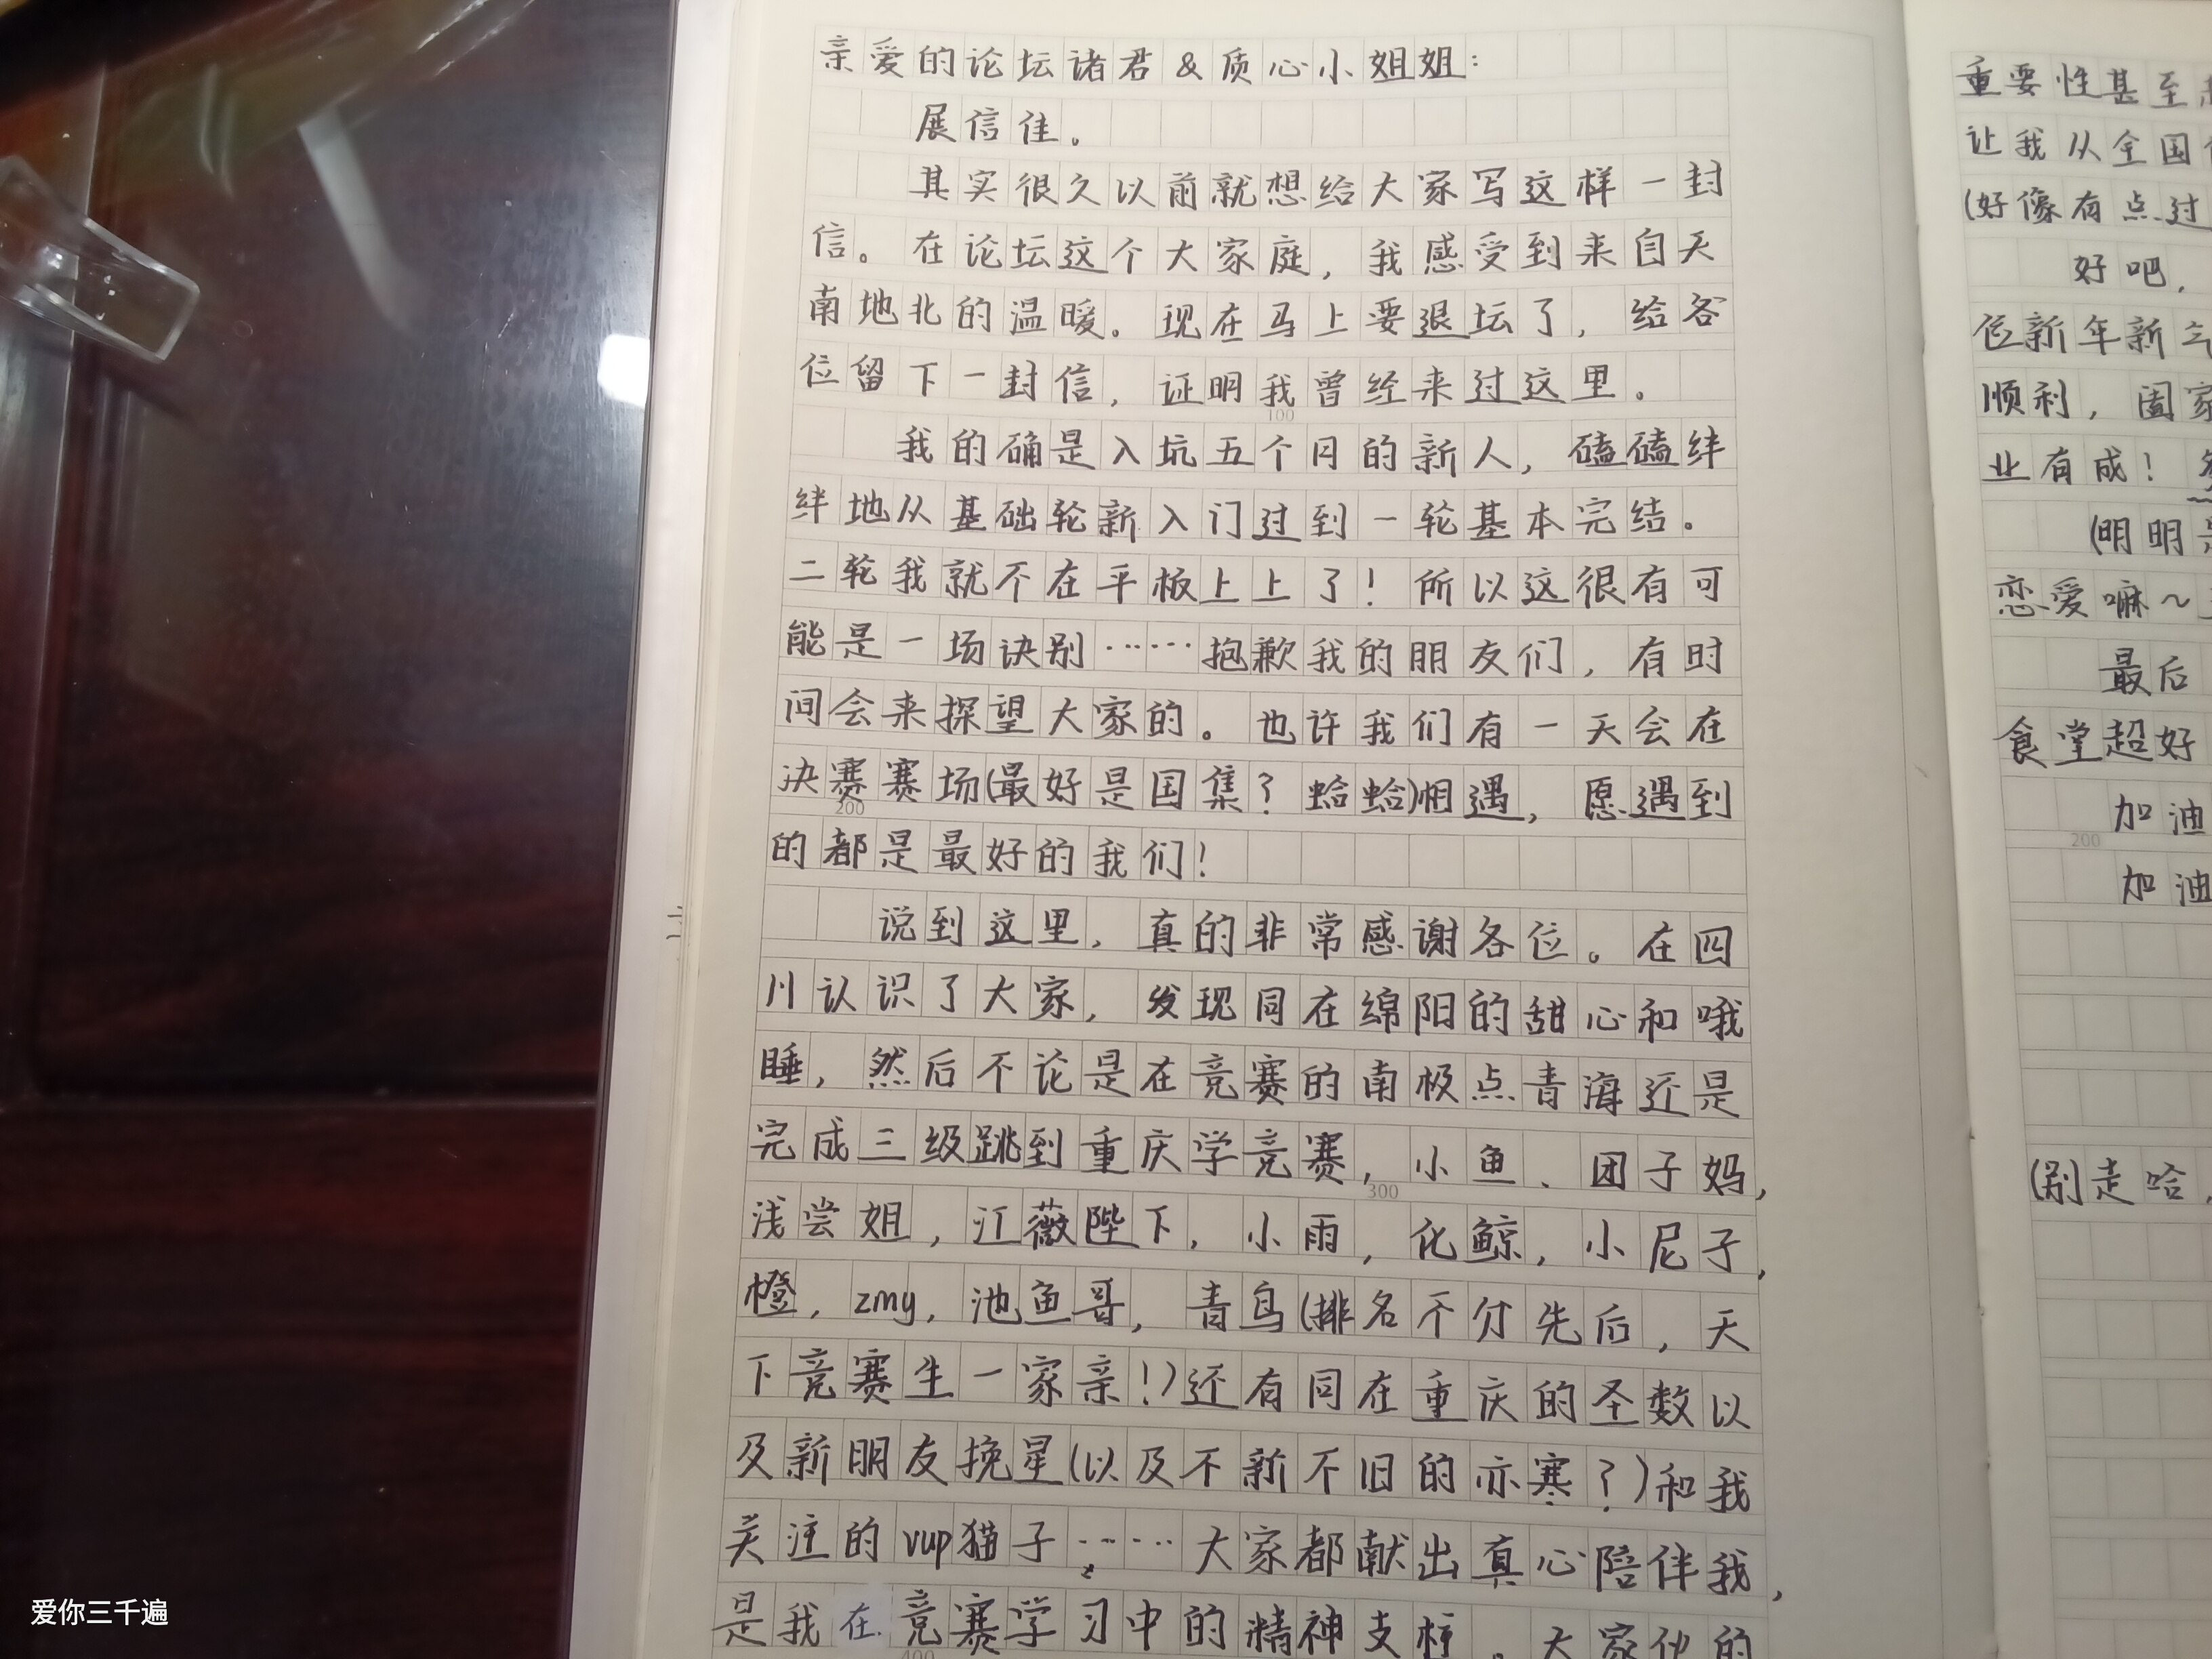 亲爱的论坛诸君&质心小姐姐：
展信佳。
其实很久以前就想给大家写这样一封
信。在论坛这个大家庭，我感受到来自天
南地北的温暖。现在马上要退坛了，给各
位留下一封信，证明我曾经来过这里。
100
我的确是入坑五个月的新人，磕磕绊
绊地从基础轮新入门过到一轮基本完结。
二轮我就不在平板上上了！所以这很有可
能是一场诀别……抱歉我的朋友们，有时
间会来探望大家的。也许我们有一天会在
决赛赛场(最好是国集？蛤蛤)相遇，愿遇到
200
的都是最好的我们！
说到这里，真的非常感谢各位。在四
川认识了大家，发现同在绵阳的甜心和哦
睡，然后不论是在竞赛的南极点青海还是
完成三级跳到重庆学竞赛，小鱼、团子妈，
300
浅尝姐，江薇陛下，小雨，化鲸，小尼子，
橙，zmy，池鱼哥，青鸟(排名不分先后，天
下竞赛生一家亲！)还有同在重庆的圣数以
及新朋友挽星(以及不新不旧的亦寒？)和我
关注的vup猫子……大家都献出真心陪伴我，
是我在竞赛学习中的精神支柱。大家他的
400
重要性甚至
让我从全国
(好像有点过
好吧，
位新年新
顺利，阖家
业有成！
(明明是
恋爱嘛~
最后
食堂超好
加油
200
加油
(别走哈，
爱你三千遍